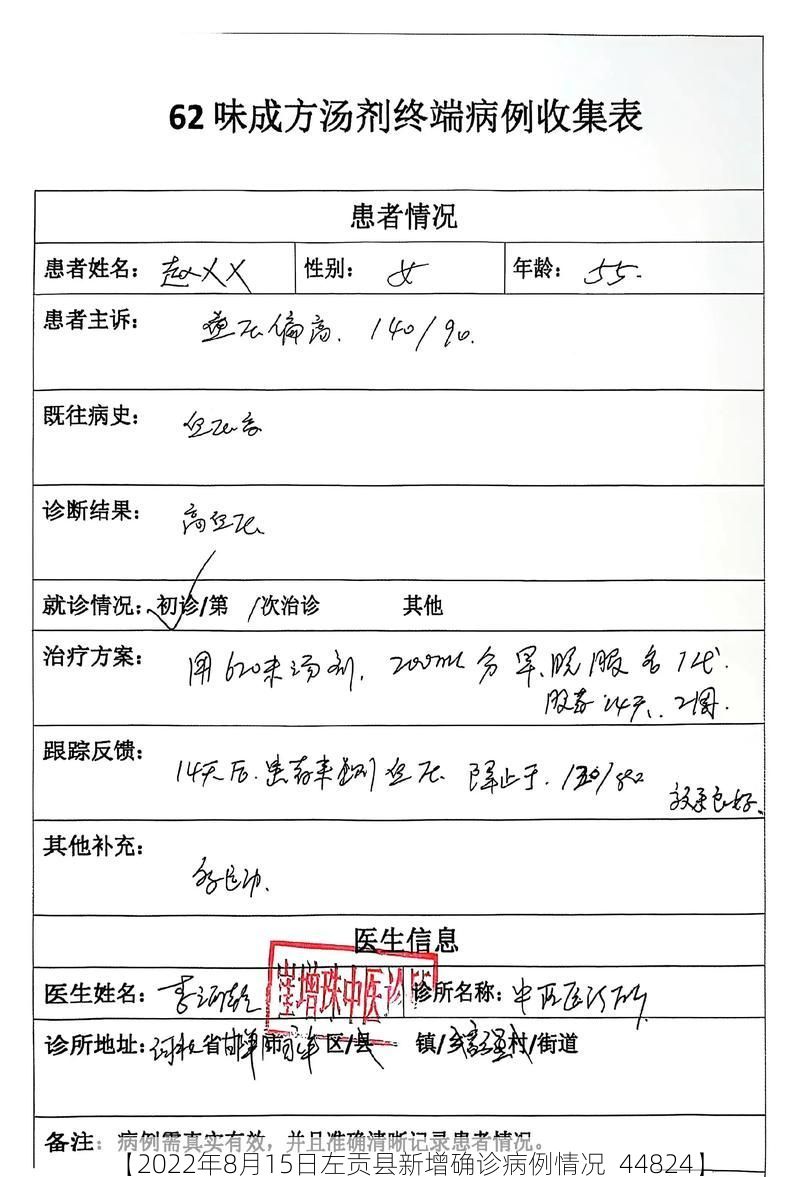 62 味成方汤剂终端病例收集表
患者情况
患者姓名: 赵XX 性别: 女 年龄: 55.
患者主诉: 血压偏高. 140/90.
既往病史: 血压高
诊断结果: 高血压
就诊情况: 初诊/第 /次治诊 其他
治疗方案: 用62味汤剂, 200ml 分早、晚服各1代.
服药14天、2周.
跟踪反馈: 14天后.患者来测血压 降止于.
效果良好、
其他补充:
医生信息
医生姓名: 崔增珠中医诊所 诊所名称: 中医诊所
诊所地址: 河北省邯郸市 区/县 镇/乡 村/街道
备注: 病例需真实有效，并且准确清晰记录患者情况。
【2022年8月15日左贡县新增确诊病例情况 44824】